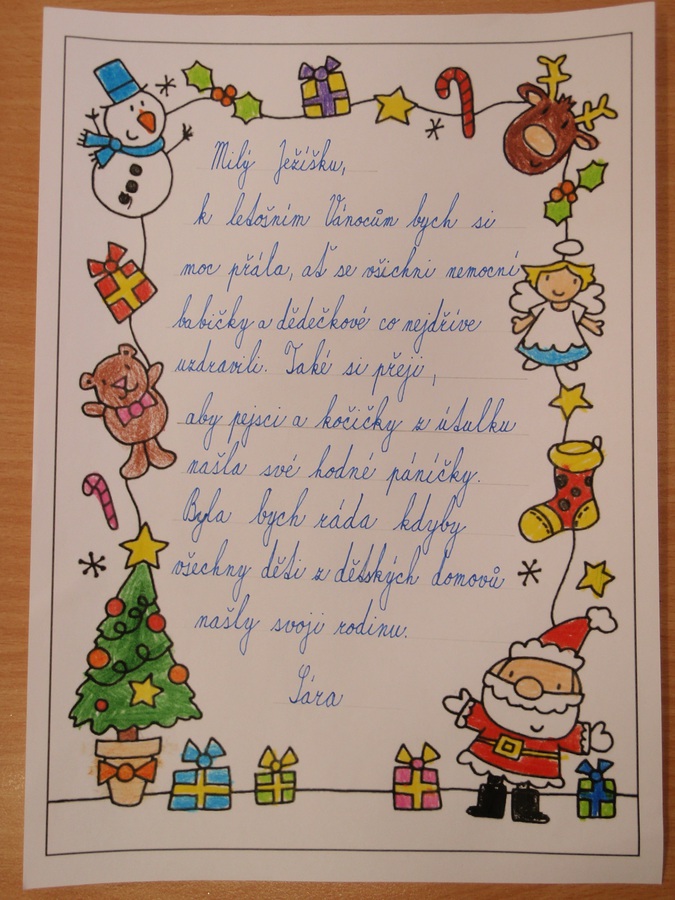 Milý Ježíšku,
k letošním Vánocům bych si
moc přála, ať se všichni nemocní
babičky a dědečkové co nejdříve
uzdravili. Také si přeji,
aby pejsci a kočičky z útulku
našla své hodné páníčky.
Byla bych ráda kdyby
všechny děti z dětských domovů
našly svoji rodinu.
Sára